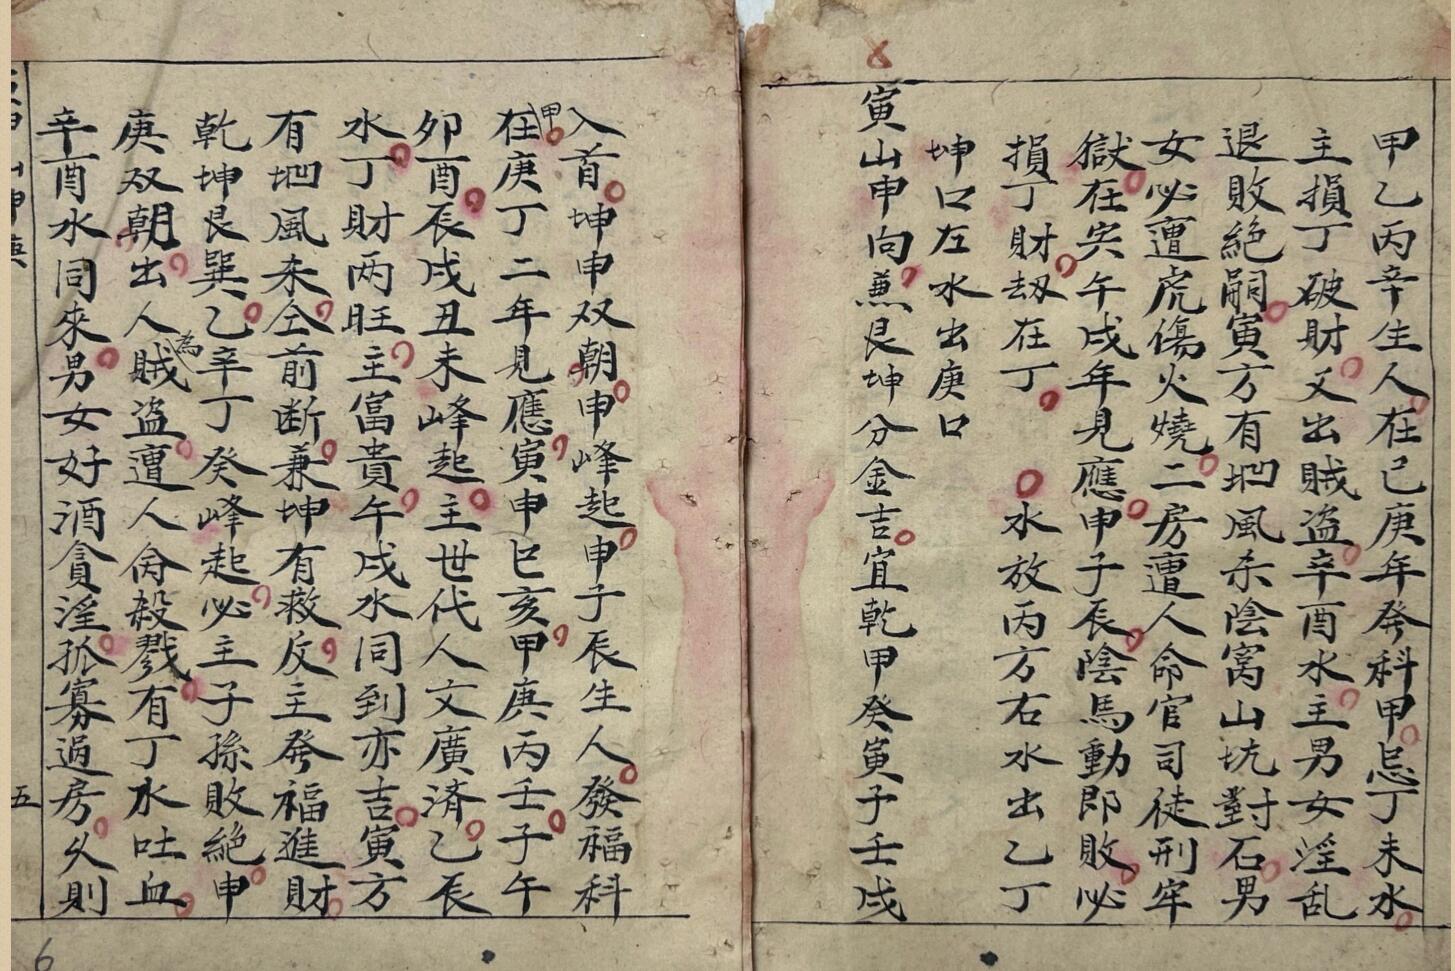 甲乙丙辛生人在己庚年癸科甲忌丁未水
主損丁破財又出賊盗辛酉水主男女淫乱
退敗絶嗣寅方有凹風杀陰窩山坑對石男
女必遭虎傷火燒二房遭人命官司徒刑牢
獄在寅午戌年見應申子辰陰馬動即敗必
損丁財刼在丁 水放丙方右水出乙丁
坤口左水出庚口
寅山申向兼艮坤分金吉宜乾甲癸寅子壬戌
入首坤申双朝申峰起申子辰生人發福科
甲在庚丁二年見應寅申巳亥甲庚丙壬子午
卯酉辰戌丑未峰起主世代人文廣済乙辰
水丁財两旺主富貴午戌水同到亦吉寅方
有凹風杀仝前断兼坤有救反主癸福進財
乾坤艮巽乙辛丁癸峰起必主子孫敗絶申
庚双朝出人為賊盗遭人侖殺戮有丁水吐血
辛酉水同來男女好酒貪淫孤寡過房久則
五
6